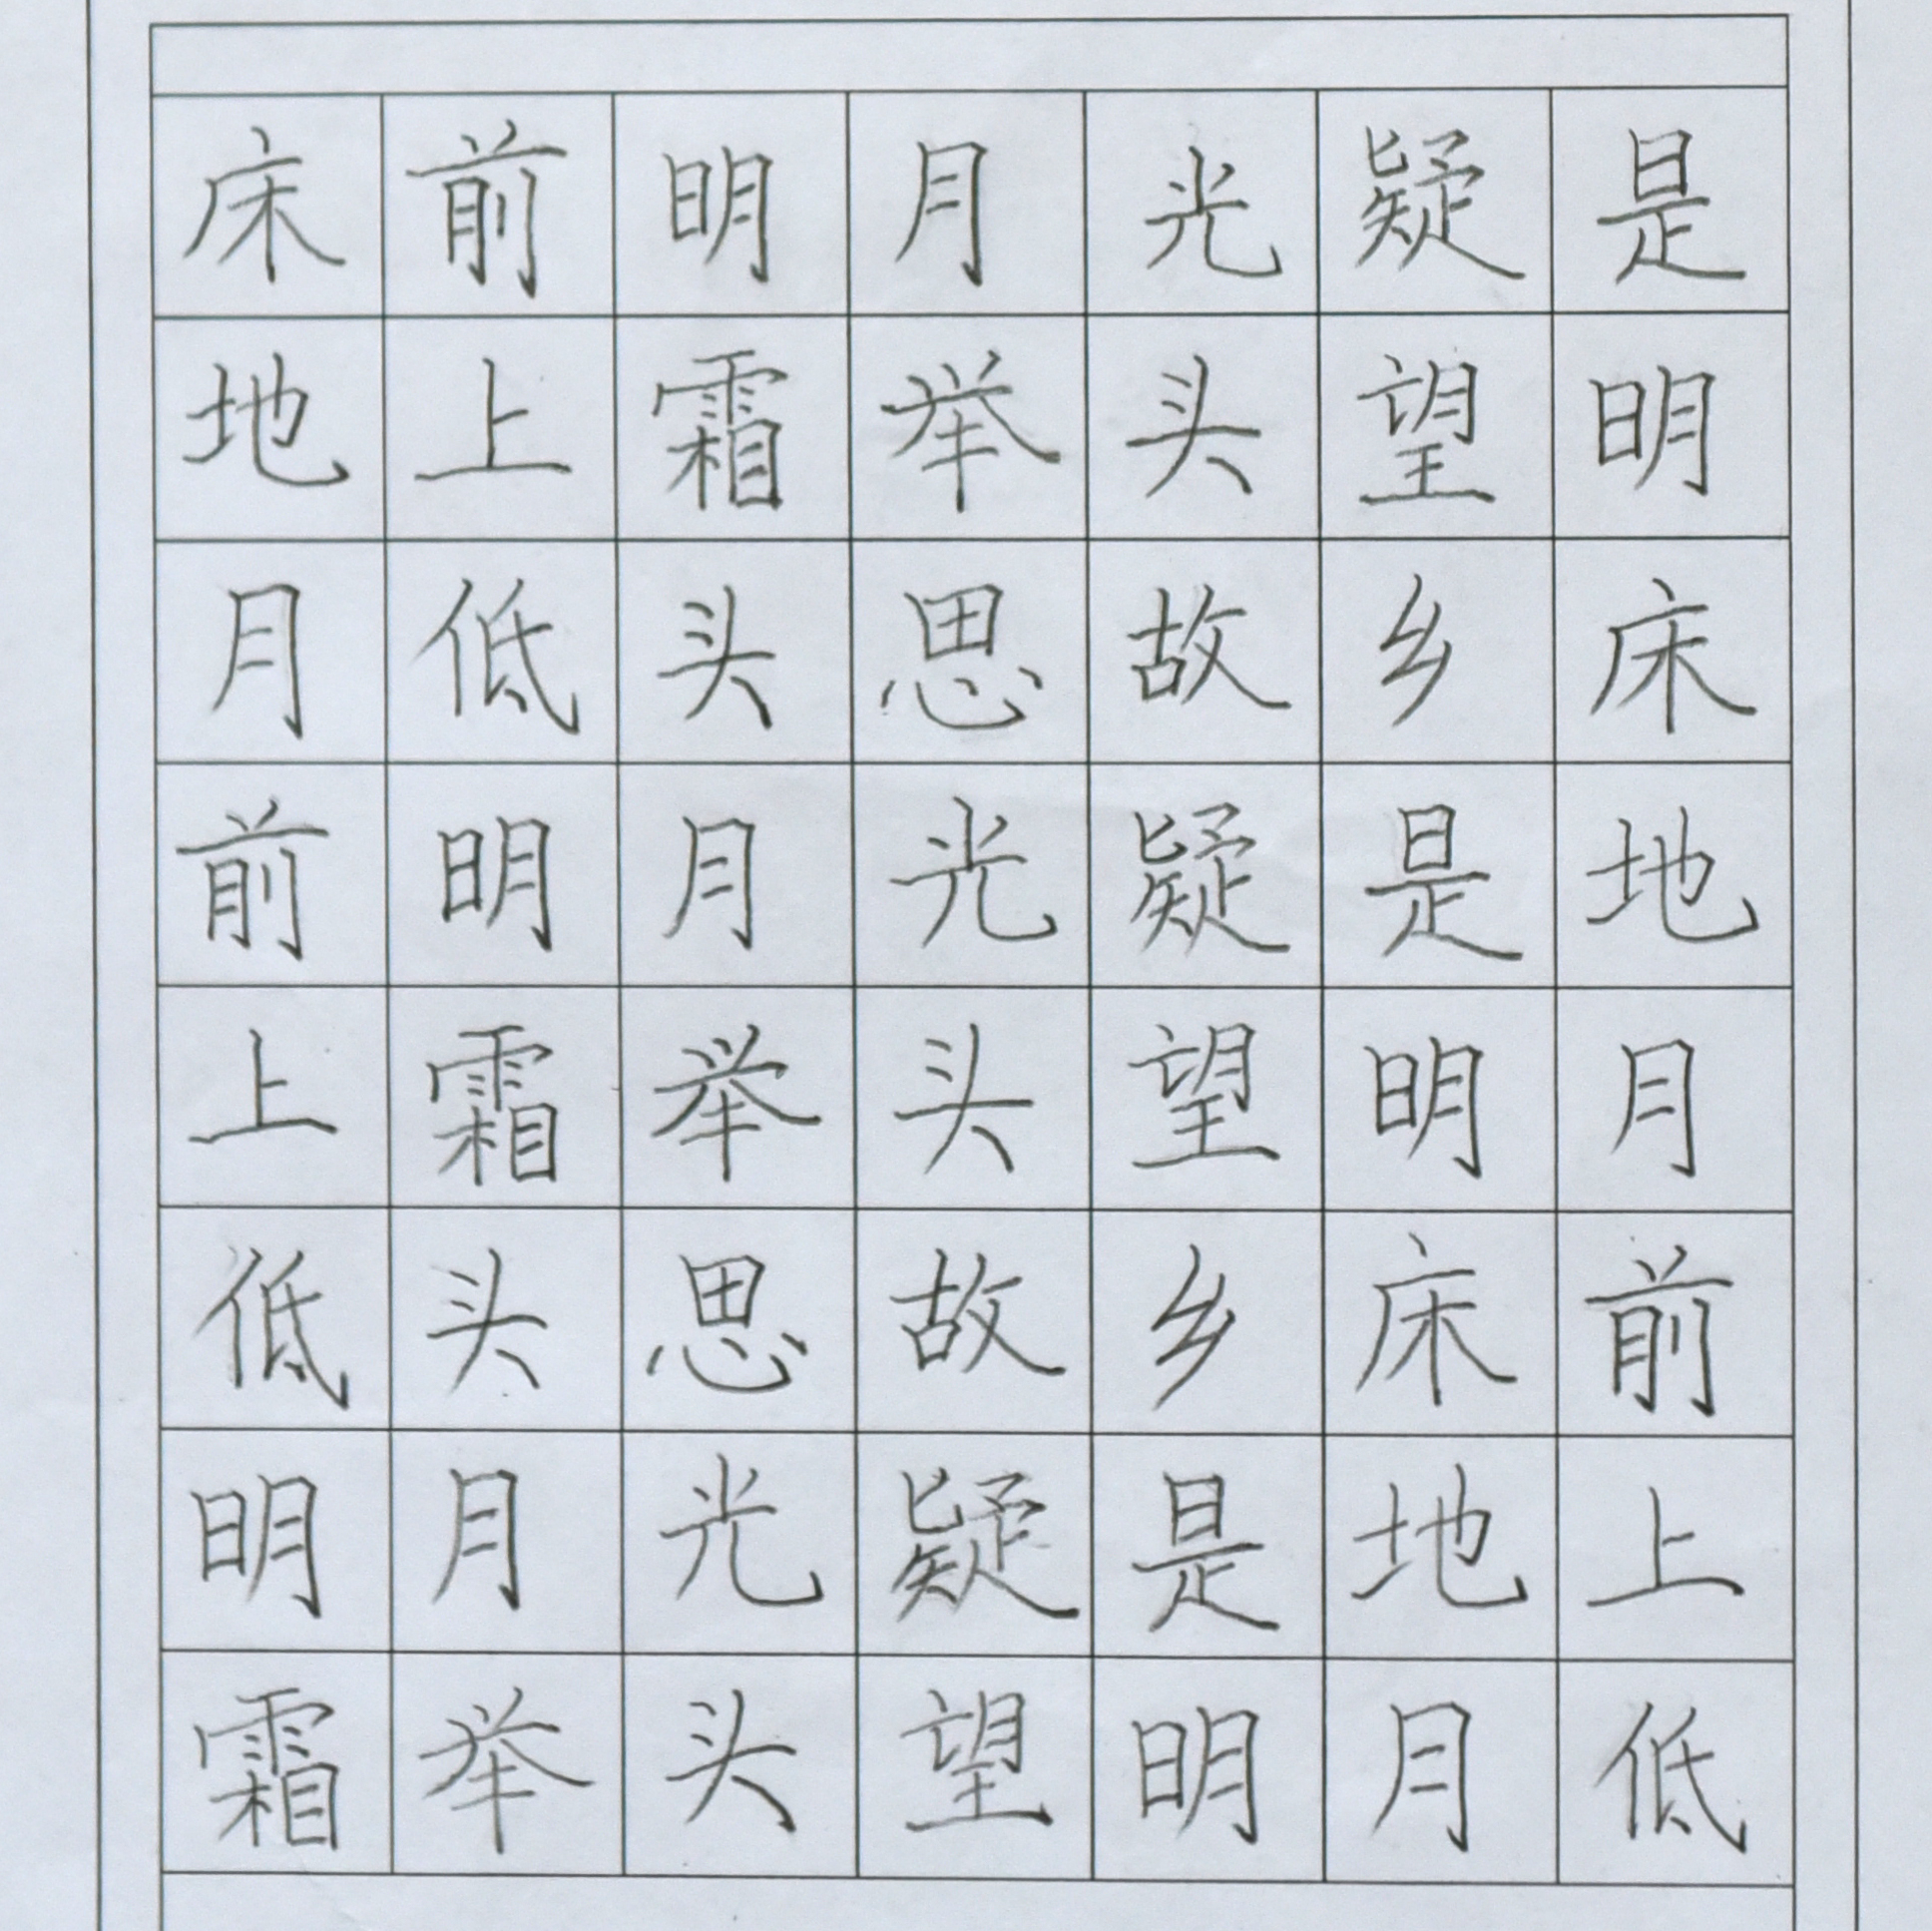 床前明月光疑是
地上霜举头望明
月低头思故乡床
前明月光疑是地
上霜举头望明月
低头思故乡床前
明月光疑是地上
霜举头望明月低